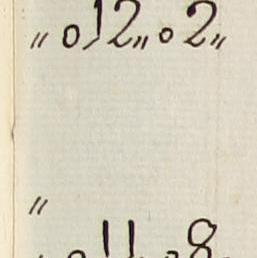 〃 012〃 02〃
〃
011 08